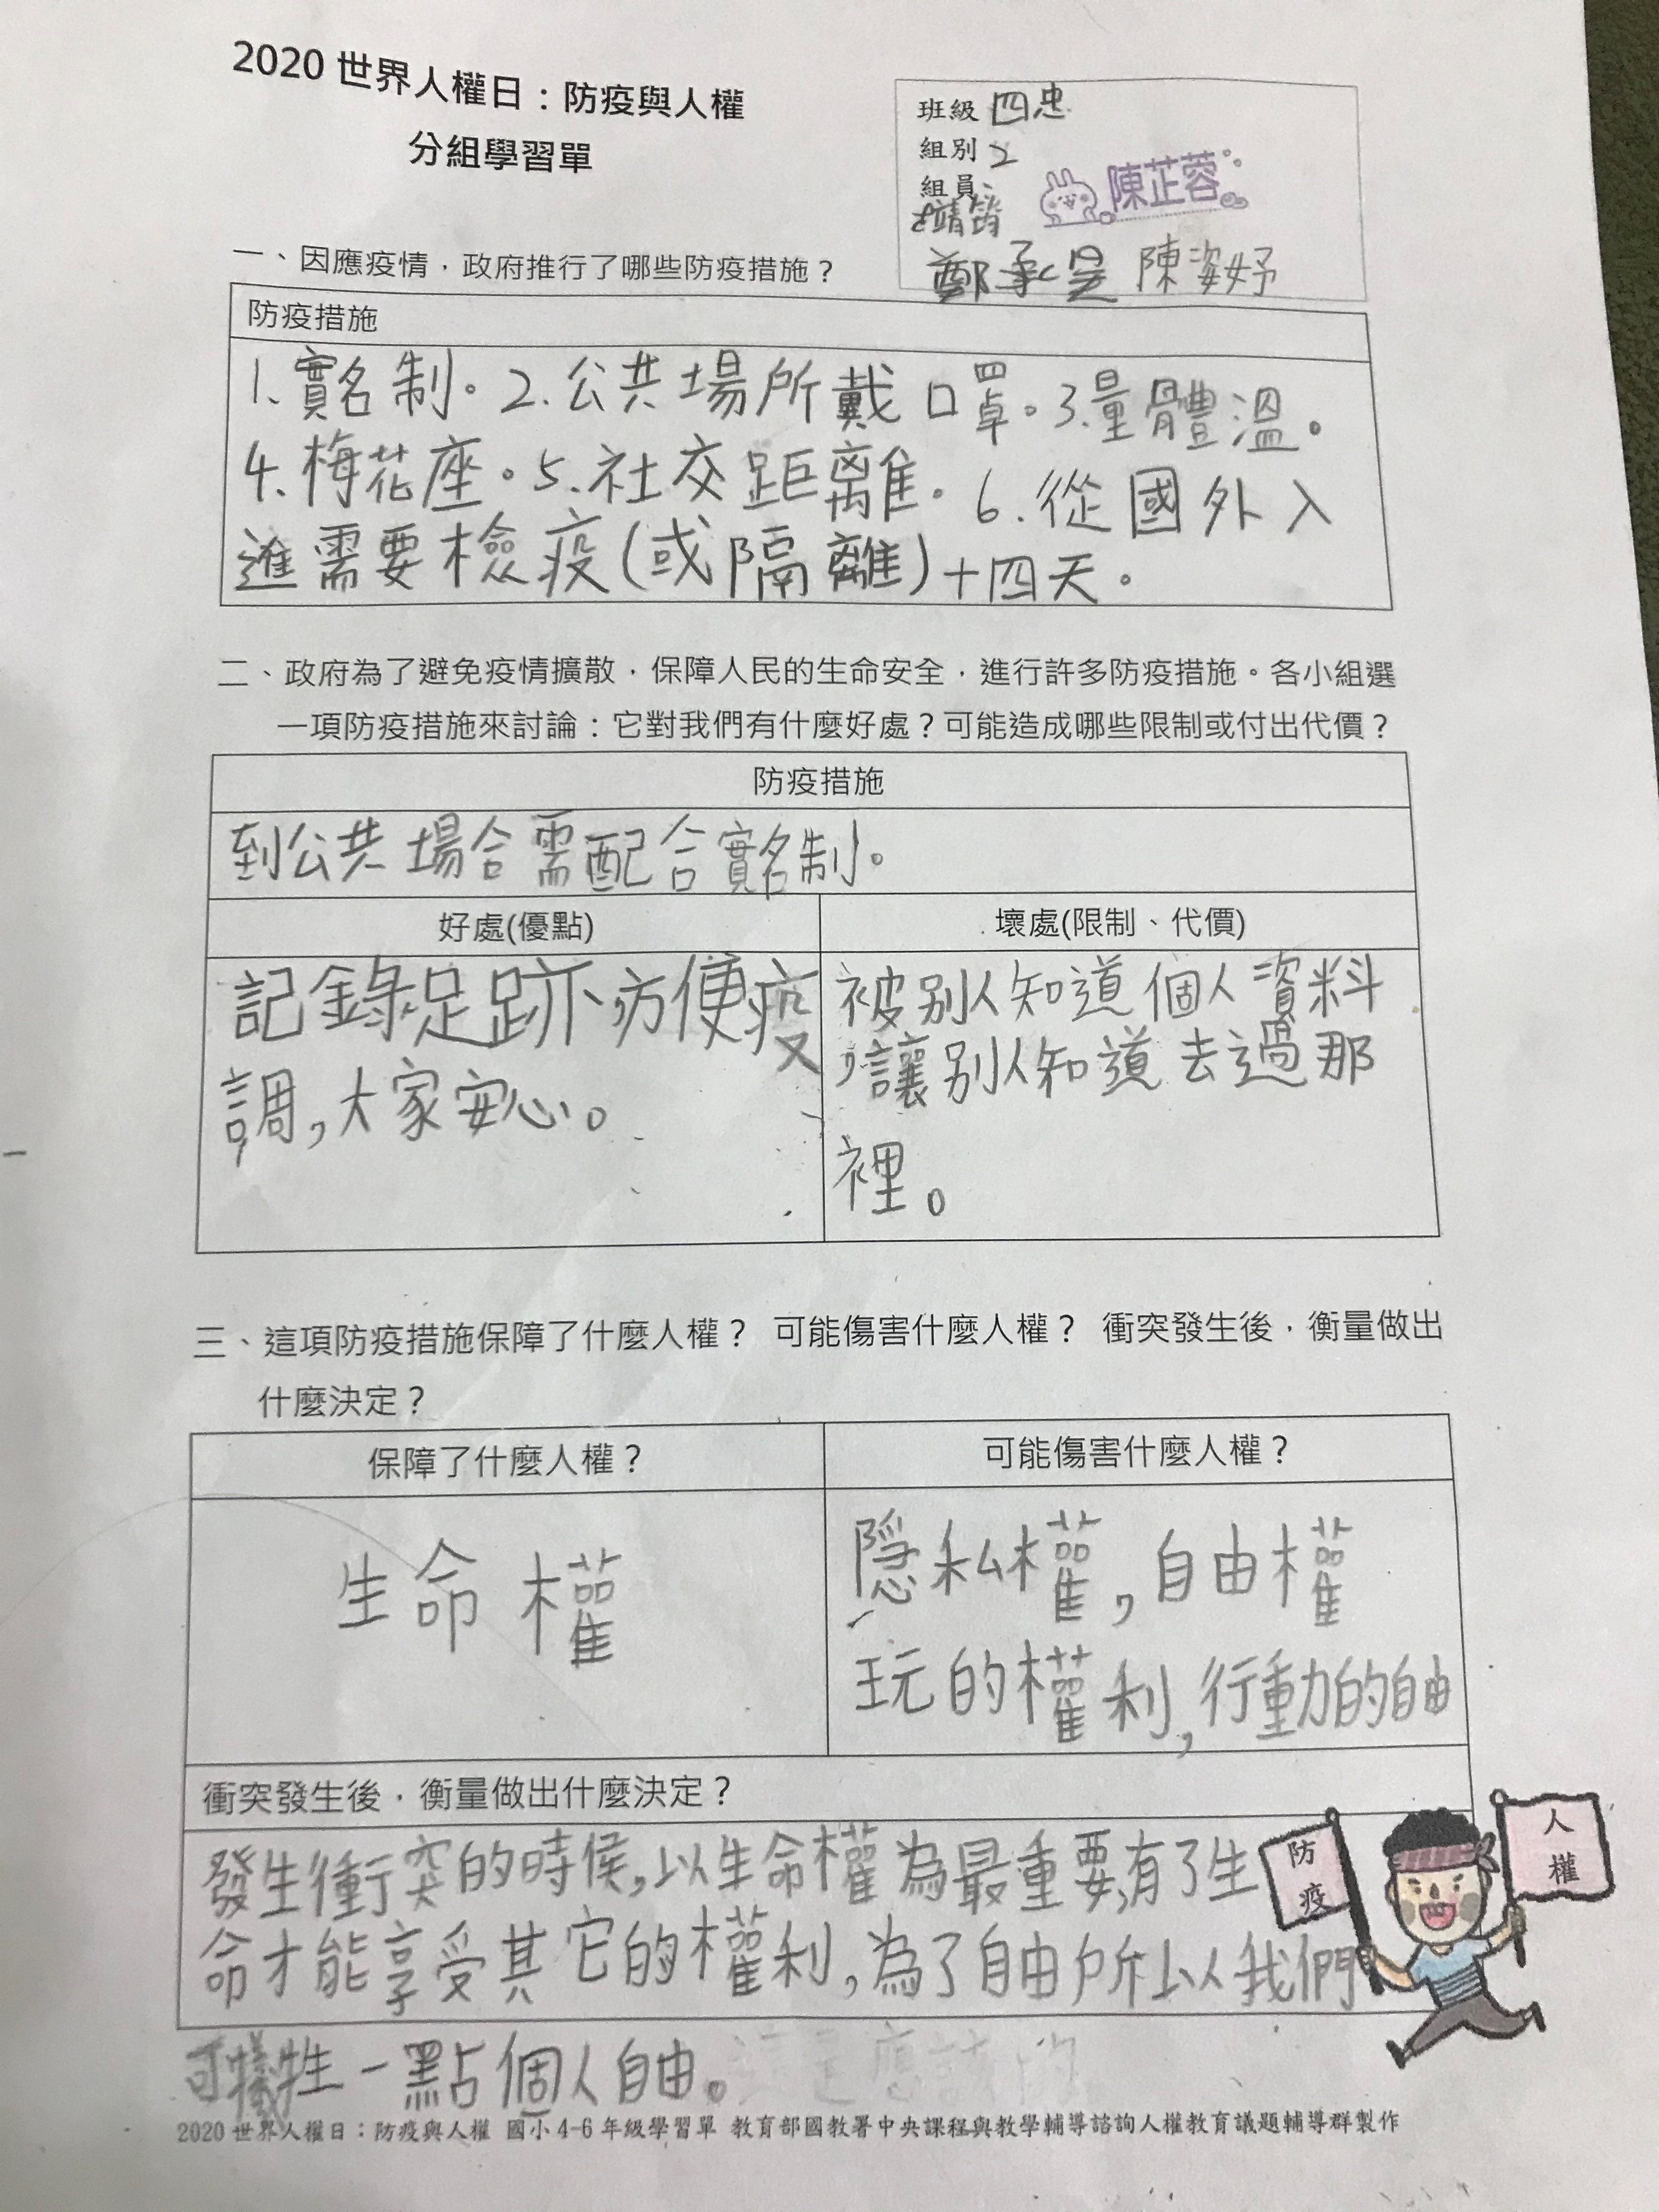 2020 世界人權日：防疫與人權
分組學習單
班級 四忠
組別 2
組員
靖
陳芷蓉
鄭承昱 陳姿妤
一、因應疫情，政府推行了哪些防疫措施？
防疫措施
1.實名制。2.公共場所戴口罩。3.量體溫。
4.梅花座。5.社交距離。6.從國外入
進需要檢疫(或隔離)十四天。
二、政府為了避免疫情擴散，保障人民的生命安全，進行許多防疫措施。各小組選
一項防疫措施來討論：它對我們有什麼好處？可能造成哪些限制或付出代價？
防疫措施
到公共場合需配合實名制。
好處(優點)
記錄足跡方便疫
調,大家安心。
壞處(限制、代價)
被別人知道個人資料
,讓別人知道去過那
裡。
三、這項防疫措施保障了什麼人權？ 可能傷害什麼人權？ 衝突發生後，衡量做出
什麼決定？
保障了什麼人權？
生命權
可能傷害什麼人權？
隱私權,自由權
玩的權利,行動的自由
衝突發生後，衡量做出什麼決定？
發生衝突的時候,以生命權為最重要,有了生
命才能享受其它的權利,為了自由所以我們
可犧牲一點個人自由。
防疫
人權
2020 世界人權日：防疫與人權 國小 4-6 年級學習單 教育部國教署中央課程與教學輔導諮詢人權教育議題輔導群製作